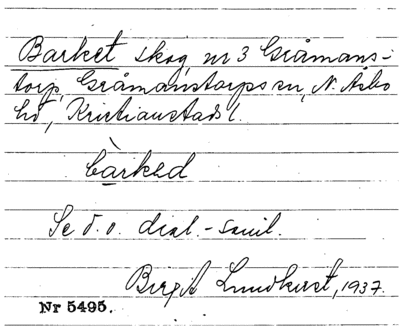 Barket skog nr 3 Gråmans-
torp, Gråmanstorps sn, N. Åsbo
hd, Kristianstads l.
bàrked
Se d. o. dial.-saml.
Birgit Lundkvist, 1937.
Nr 5495.